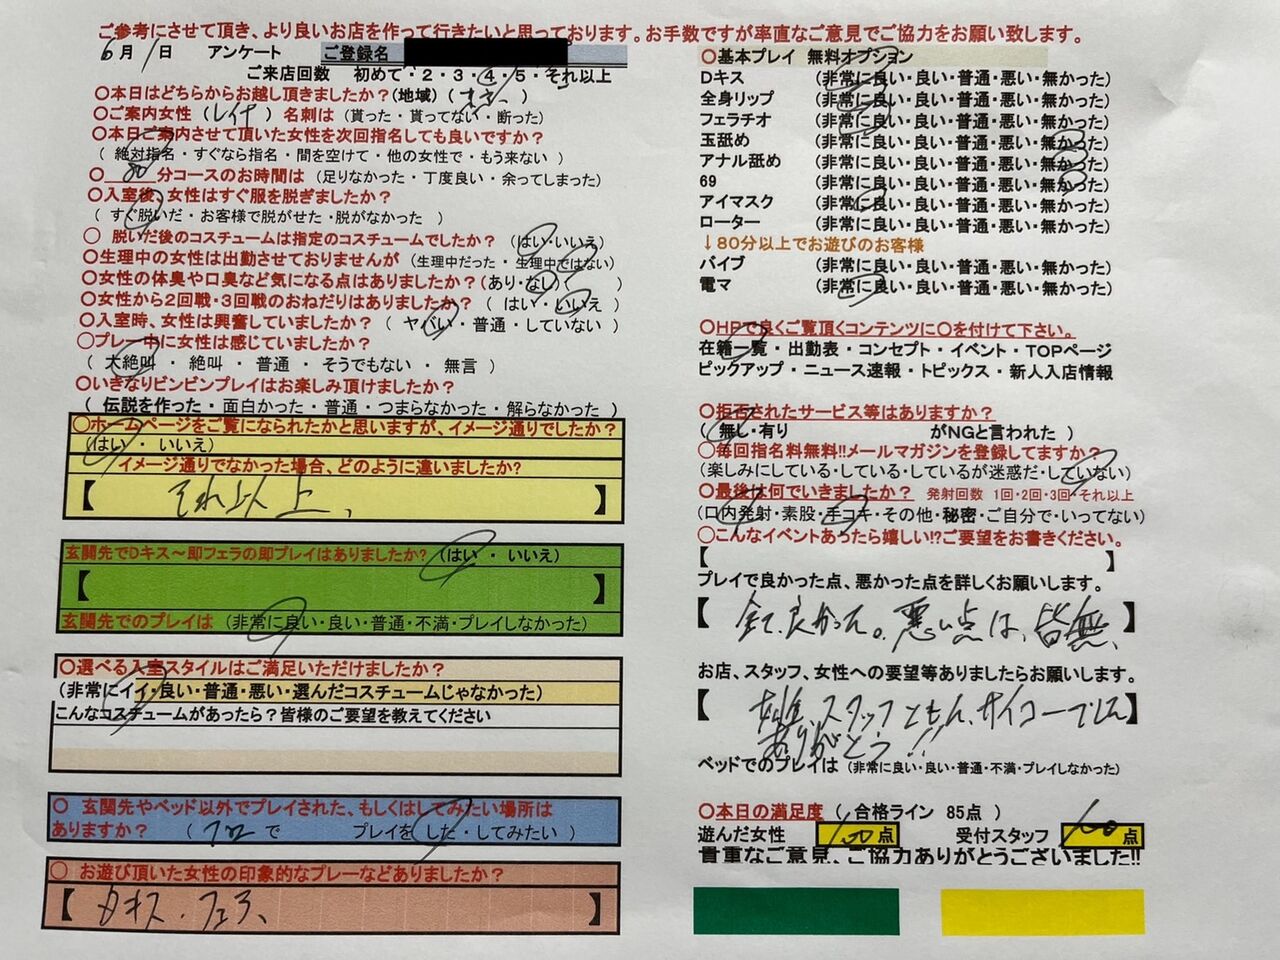 ご参考にさせて頂き、より良いお店を作って行きたいと思っております。お手数ですが率直なご意見でご協力をお願い致します。
6月1日 アンケート ご登録名
ご来店回数 初めて・2・3・4・5・それ以上
〇本日はどちらからお越し頂きましたか?(地域)( )
〇ご案内女性 (レイナ) 名刺は (貰った・貰ってない・断った)
〇本日ご案内させて頂いた女性を次回指名しても良いですか?
( 絶対指名・すぐなら指名・間を空けて・他の女性で・もう来ない )
〇 80 分コースのお時間は (足りなかった・丁度良い・余ってしまった)
〇入室後、女性はすぐ服を脱ぎましたか?
( すぐ脱いだ・お客様で脱がせた・脱がなかった )
〇 脱いだ後のコスチュームは指定のコスチュームでしたか? (はい・いいえ)
〇生理中の女性は出勤させておりませんが (生理中だった・生理中ではない)
〇女性の体臭や口臭など気になる点はありましたか?(あり・なし)( )
〇女性から2回戦・3回戦のおねだりはありましたか? ( はい・いいえ )
〇入室時、女性は興奮していましたか? ( ヤバい・普通・していない )
〇プレー中に女性は感じていましたか?
( 大絶叫 ・ 絶叫 ・ 普通 ・ そうでもない ・ 無言 )
〇いきなりビンビンプレイはお楽しみ頂けましたか?
( 伝説を作った・面白かった・普通・つまらなかった・解らなかった )
〇ホームページをご覧になられたかと思いますが、イメージ通りでしたか?
(はい ・ いいえ)
イメージ通りでなかった場合、どのように違いましたか?
【 それ以上、 】
玄関先でDキス〜即フェラの即プレイはありましたか? (はい ・ いいえ)
【 】
玄関先でのプレイは (非常に良い・良い・普通・不満・プレイしなかった)
〇選べる入室スタイルはご満足いただけましたか?
(非常にイイ・良い・普通・悪い・選んだコスチュームじゃなかった)
こんなコスチュームがあったら?皆様のご要望を教えてください
〇 玄関先やベッド以外でプレイされた、もしくはしてみたい場所は
ありますか? ( フロ で プレイを した・してみたい )
〇 お遊び頂いた女性の印象的なプレーなどありましたか?
【 Dキス・フェラ、 】
〇基本プレイ 無料オプション
Dキス (非常に良い・良い・普通・悪い・無かった)
全身リップ (非常に良い・良い・普通・悪い・無かった)
フェラチオ (非常に良い・良い・普通・悪い・無かった)
玉舐め (非常に良い・良い・普通・悪い・無かった)
アナル舐め (非常に良い・良い・普通・悪い・無かった)
69 (非常に良い・良い・普通・悪い・無かった)
アイマスク (非常に良い・良い・普通・悪い・無かった)
ローター (非常に良い・良い・普通・悪い・無かった)
↓80分以上でお遊びのお客様
バイブ (非常に良い・良い・普通・悪い・無かった)
電マ (非常に良い・良い・普通・悪い・無かった)
〇HPで良くご覧頂くコンテンツに〇を付けて下さい。
在籍一覧・出勤表・コンセプト・イベント・TOPページ
ピックアップ・ニュース速報・トピックス・新人入店情報
〇拒否されたサービス等はありますか?
( 無し・有り がNGと言われた )
〇毎回指名料無料!!メールマガジンを登録してますか?
(楽しみにしている・している・しているが迷惑だ・していない)
〇最後は何でいきましたか? 発射回数 1回・2回・3回・それ以上
(口内発射・素股・手コキ・その他・秘密・ご自分で・いってない)
〇こんなイベントあったら嬉しい!?ご要望をお書きください。
【 】
プレイで良かった点、悪かった点を詳しくお願いします。
【 全て、良かった。悪い点は、皆無、 】
お店、スタッフ、女性への要望等ありましたらお願いします。
【 女性、スタッフともに、サイコーでした 】
ありがとう!!
ベッドでのプレイは (非常に良い・良い・普通・不満・プレイしなかった)
〇本日の満足度 ( 合格ライン 85点 )
遊んだ女性 100 点 受付スタッフ 100 点
貴重なご意見、ご協力ありがとうございました!!